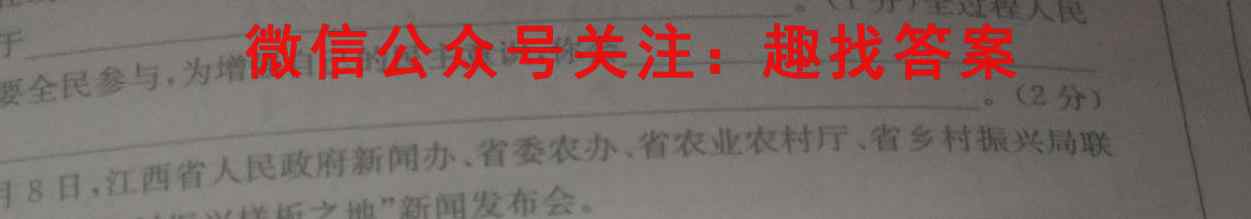 。(1分)全过程人民
于
微信公众号关注：趣找答案
要全民参与，为增
。(2分)
月8日，江西省人民政府新闻办、省委农办、省农业农村厅、省乡村振兴局联
振兴样板之地”新闻发布会。